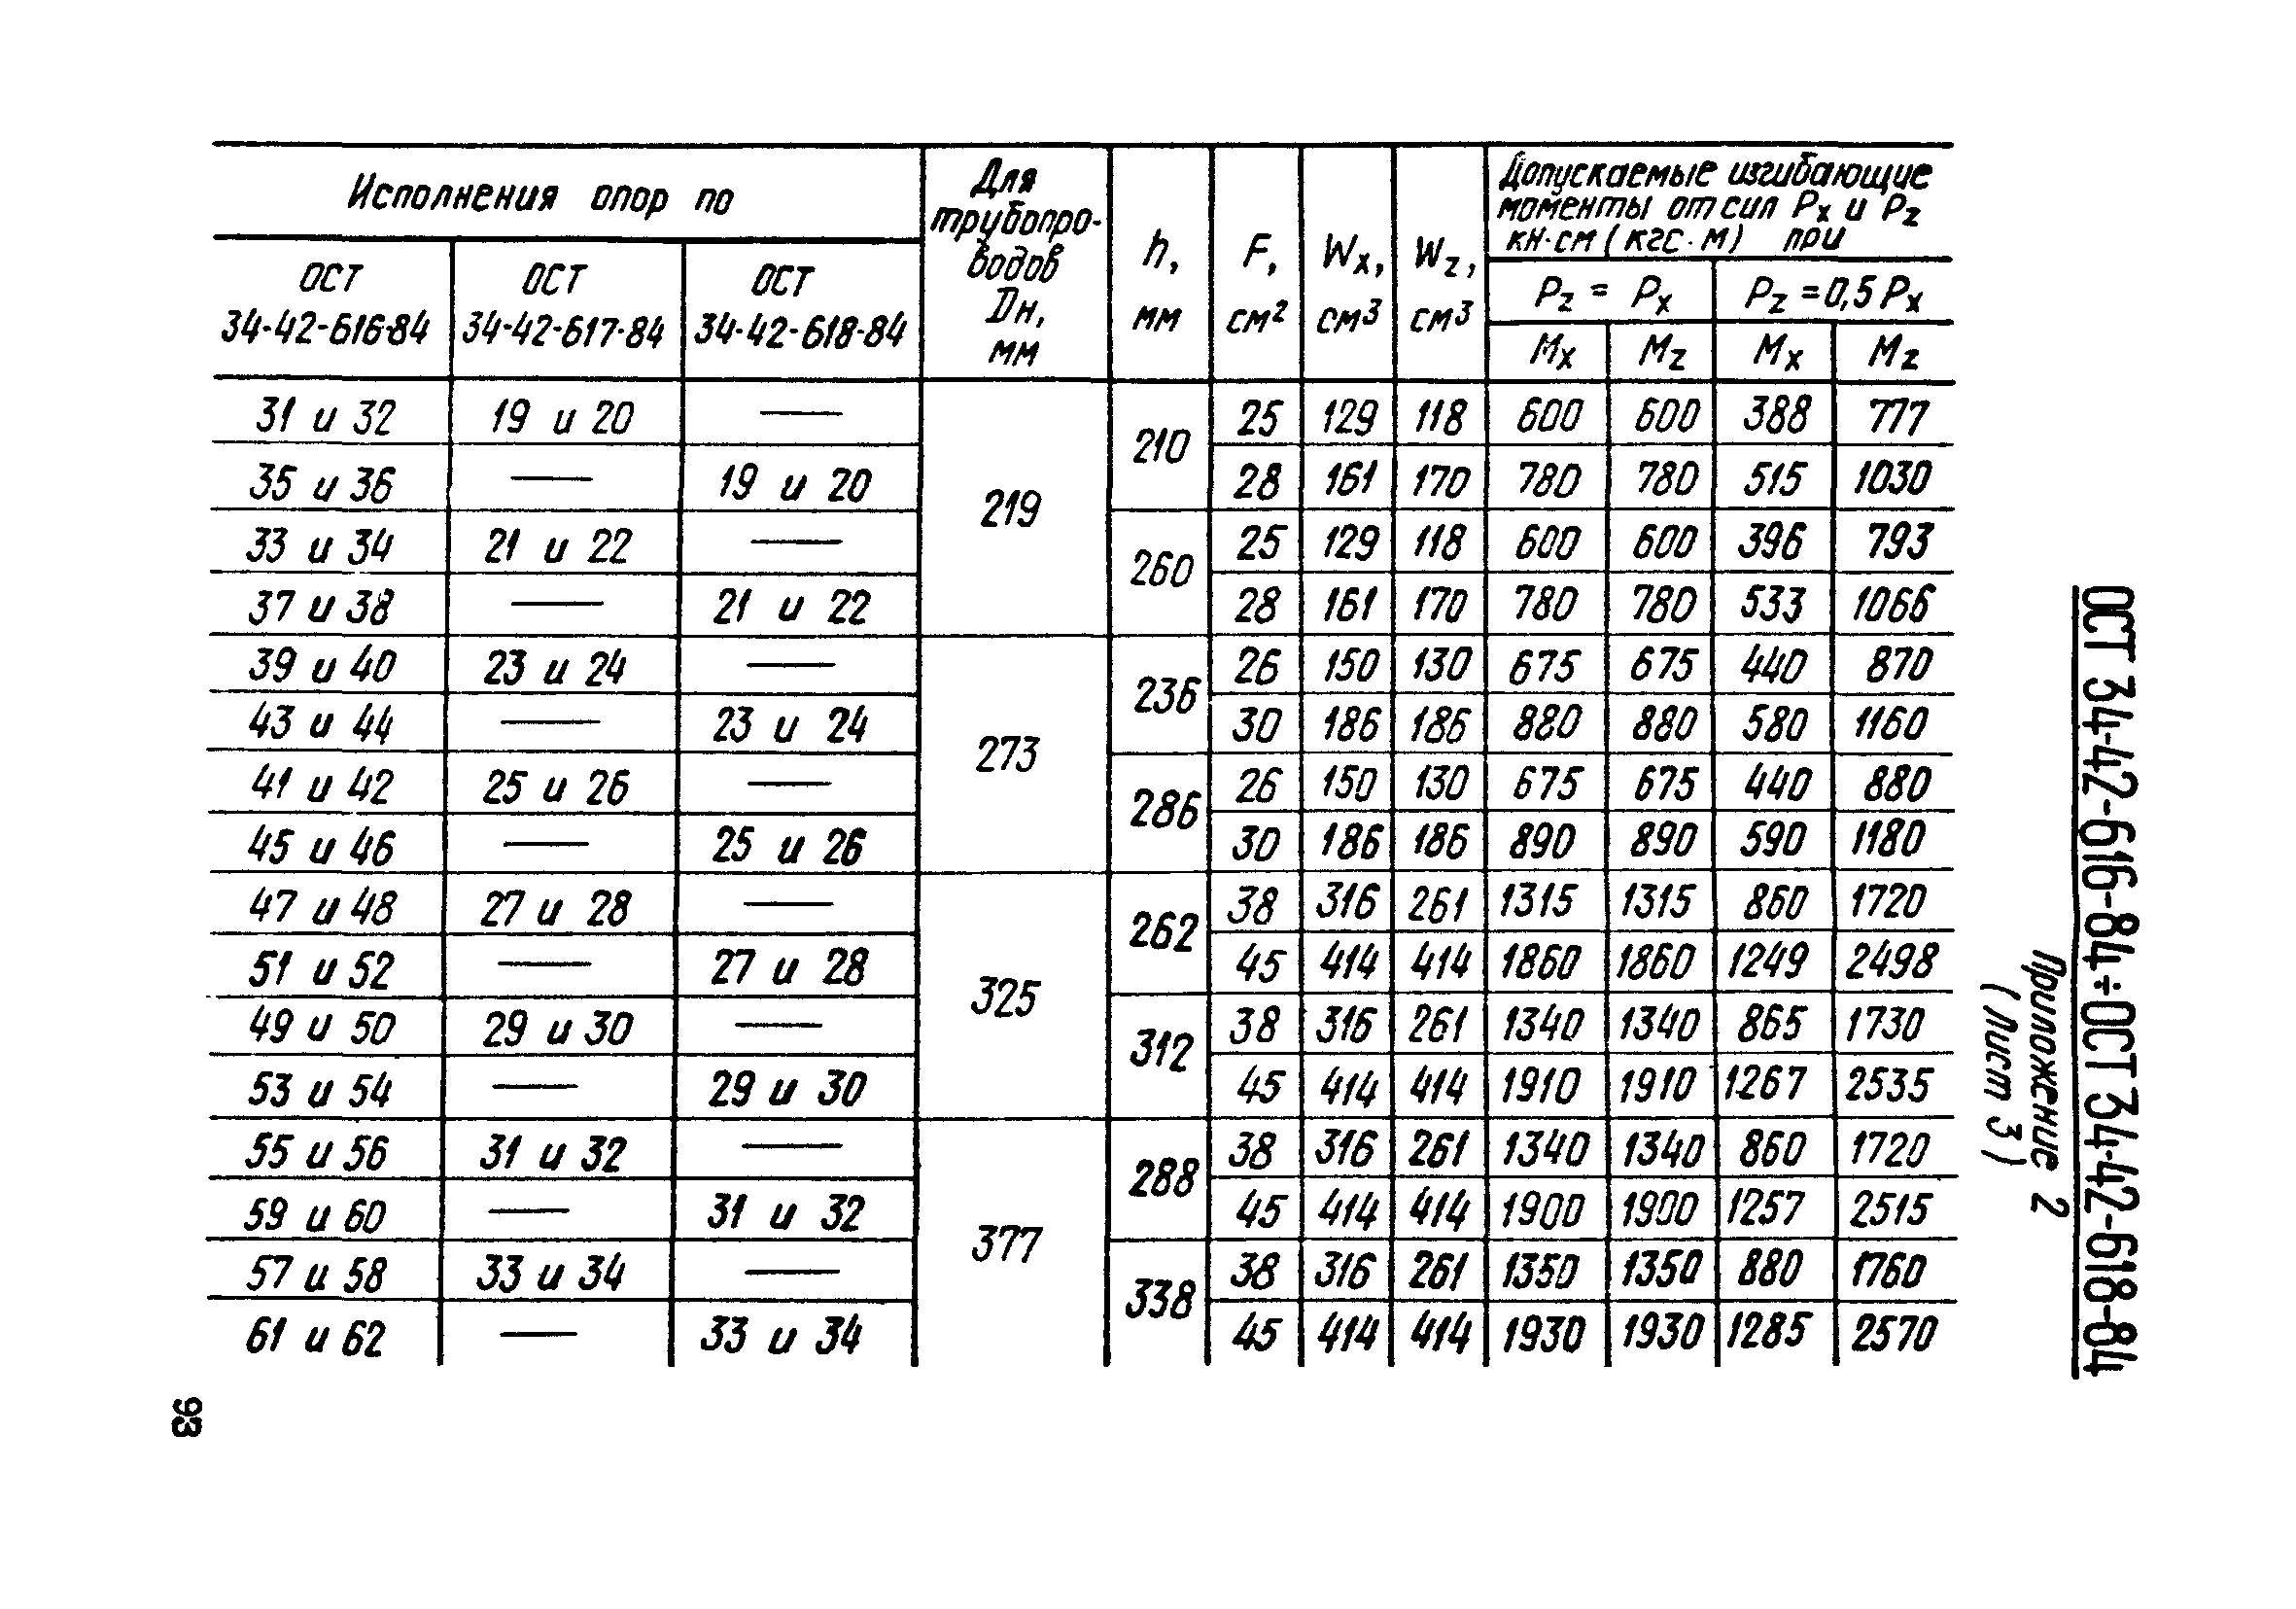 Исполнения опор по
Для трубопро-водов Dн, мм
h, мм
F, см²
Wx, см³
Wz, см³
Допускаемые изгибающие
моменты от сил Px и Pz
кн·см (кгс·м) при
ОСТ 34-42-616-84
ОСТ 34-42-617-84
ОСТ 34-42-618-84
Pz = Px
Pz = 0,5 Px
Mx Mz Mx Mz
31 и 32 19 и 20 — 219 210 25 129 118 600 600 388 777
35 и 36 — 19 и 20 28 161 170 780 780 515 1030
33 и 34 21 и 22 — 260 25 129 118 600 600 396 793
37 и 38 — 21 и 22 28 161 170 780 780 533 1066
39 и 40 23 и 24 — 273 236 26 150 130 675 675 440 870
43 и 44 — 23 и 24 30 186 186 880 880 580 1160
41 и 42 25 и 26 — 286 26 150 130 675 675 440 880
45 и 46 — 25 и 26 30 186 186 890 890 590 1180
47 и 48 27 и 28 — 325 262 38 316 261 1315 1315 860 1720
51 и 52 — 27 и 28 45 414 414 1860 1860 1249 2498
49 и 50 29 и 30 — 312 38 316 261 1340 1340 865 1730
53 и 54 — 29 и 30 45 414 414 1910 1910 1267 2535
55 и 56 31 и 32 — 377 288 38 316 261 1340 1340 860 1720
59 и 60 — 31 и 32 45 414 414 1900 1900 1257 2515
57 и 58 33 и 34 — 338 38 316 261 1350 1350 880 1760
61 и 62 — 33 и 34 45 414 414 1930 1930 1285 2570
ОСТ 34-42-616-84÷ОСТ 34-42-618-84
Приложение 2
(Лист 3)
93